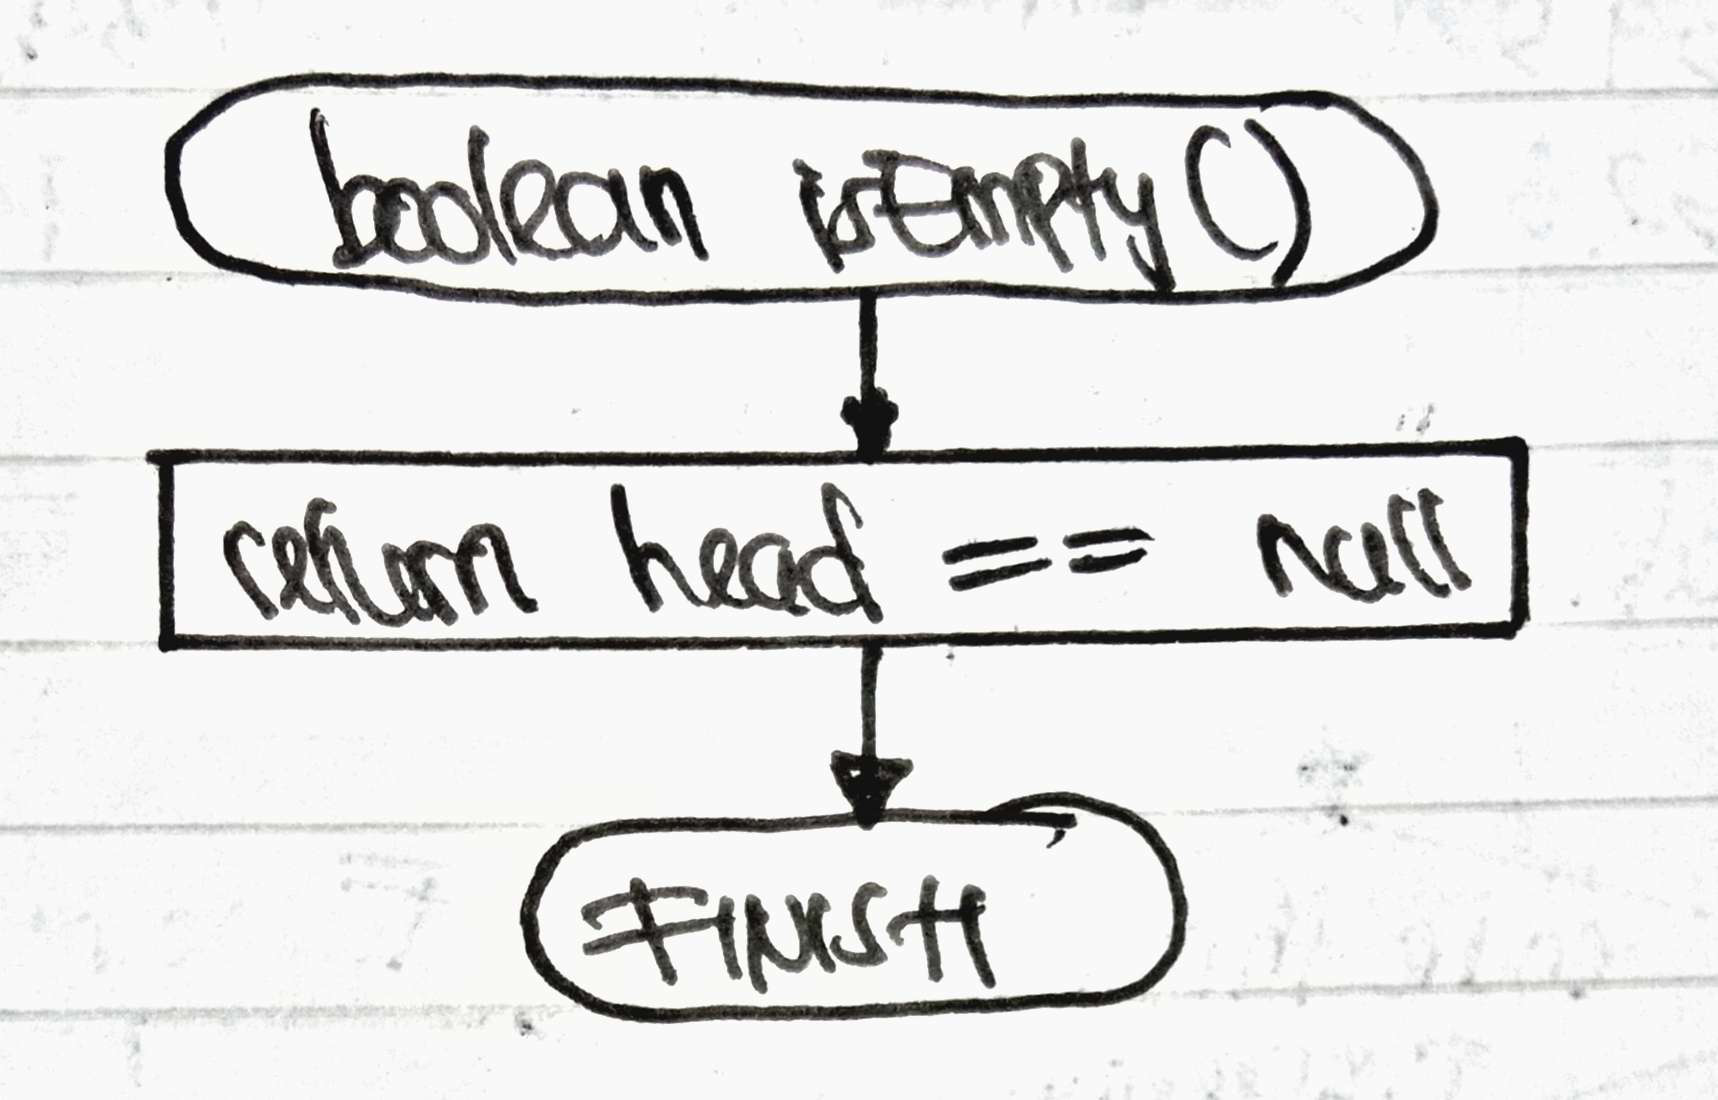 boolean isEmpty()
return head == null
FINISH